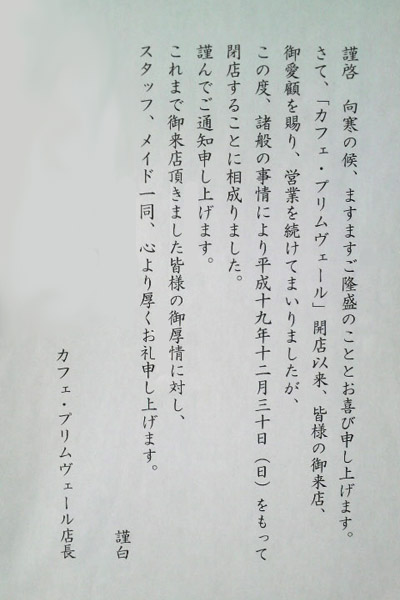 謹啓　向寒の候、ますますご隆盛のこととお喜び申し上げます。
さて、「カフェ・プリムヴェール」開店以来、皆様の御来店、
御愛顧を賜り、営業を続けてまいりましたが、
この度、諸般の事情により平成十九年十二月三十日（日）をもって
閉店することに相成りました。
謹んでご通知申し上げます。
これまで御来店頂きました皆様の御厚情に対し、
スタッフ、メイド一同、心より厚くお礼申し上げます。
謹白
カフェ・プリムヴェール店長